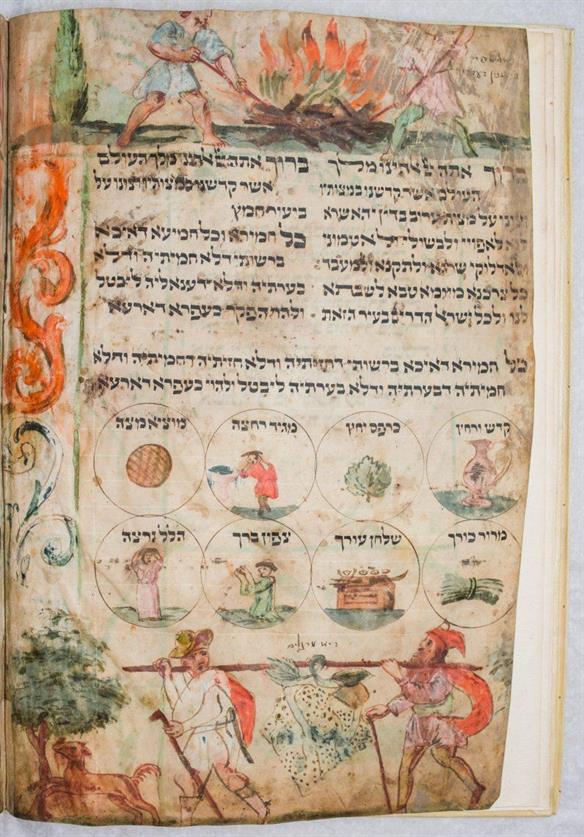 ברוך אתה יי אלהינו מלך
העולם אשר קדשנו במצותיו
וצונו על מצות עירוב בדין יהא שרא
לנא לאפויי ולבשולי ולאטמוני
ולאדלוקי שרגא ולתקנא ולמעבד
כל צרכנא מיומא טבא לשבתא
לנו ולכל ישראל הדרים בעיר הזאת
ברוך אתה יי אלהינו מלך העולם
אשר קדשנו במצותיו וצונו על
ביעור חמץ
כל חמירא וכל חמיעא דאיכא
ברשותי דלא חמיתיה ודלא
בערתיה ודלא ידענא ליה ליבטל
ולהוי הפקר כעפרא דארעא
כל חמירא דאיכא ברשותי דחזיתיה ודלא חזיתיה דחמיתיה ודלא
חמיתיה דבערתיה ודלא בערתיה ליבטל ולהוי כעפרא דארעא
קדש ורחץ
כרפס יחץ
מגיד רחצה
מוציא מצה
מרור כורך
שלחן עורך
צפון ברך
הלל נרצה